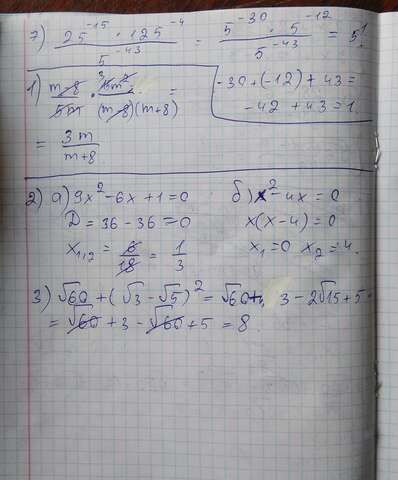 7) (25⁻¹⁵ · 125⁻⁴) / 5⁻⁴³ = (5⁻³⁰ · 5⁻¹²) / 5⁻⁴³ = 5¹.
-30 + (-12) + 43 =
-42 + 43 = 1.
1) (m-8) / 5m · 15m² / ((m-8)(m+8)) =
= 3m / (m+8)
2) а) 9x² - 6x + 1 = 0
D = 36 - 36 = 0
x₁,₂ = 6/18 = 1/3
б) x² - 4x = 0
x(x-4) = 0
x₁ = 0 x₂ = 4.
3) √60 + (√3 - √5)² = √60 + 3 - 2√15 + 5 =
= √60 + 3 - √60 + 5 = 8